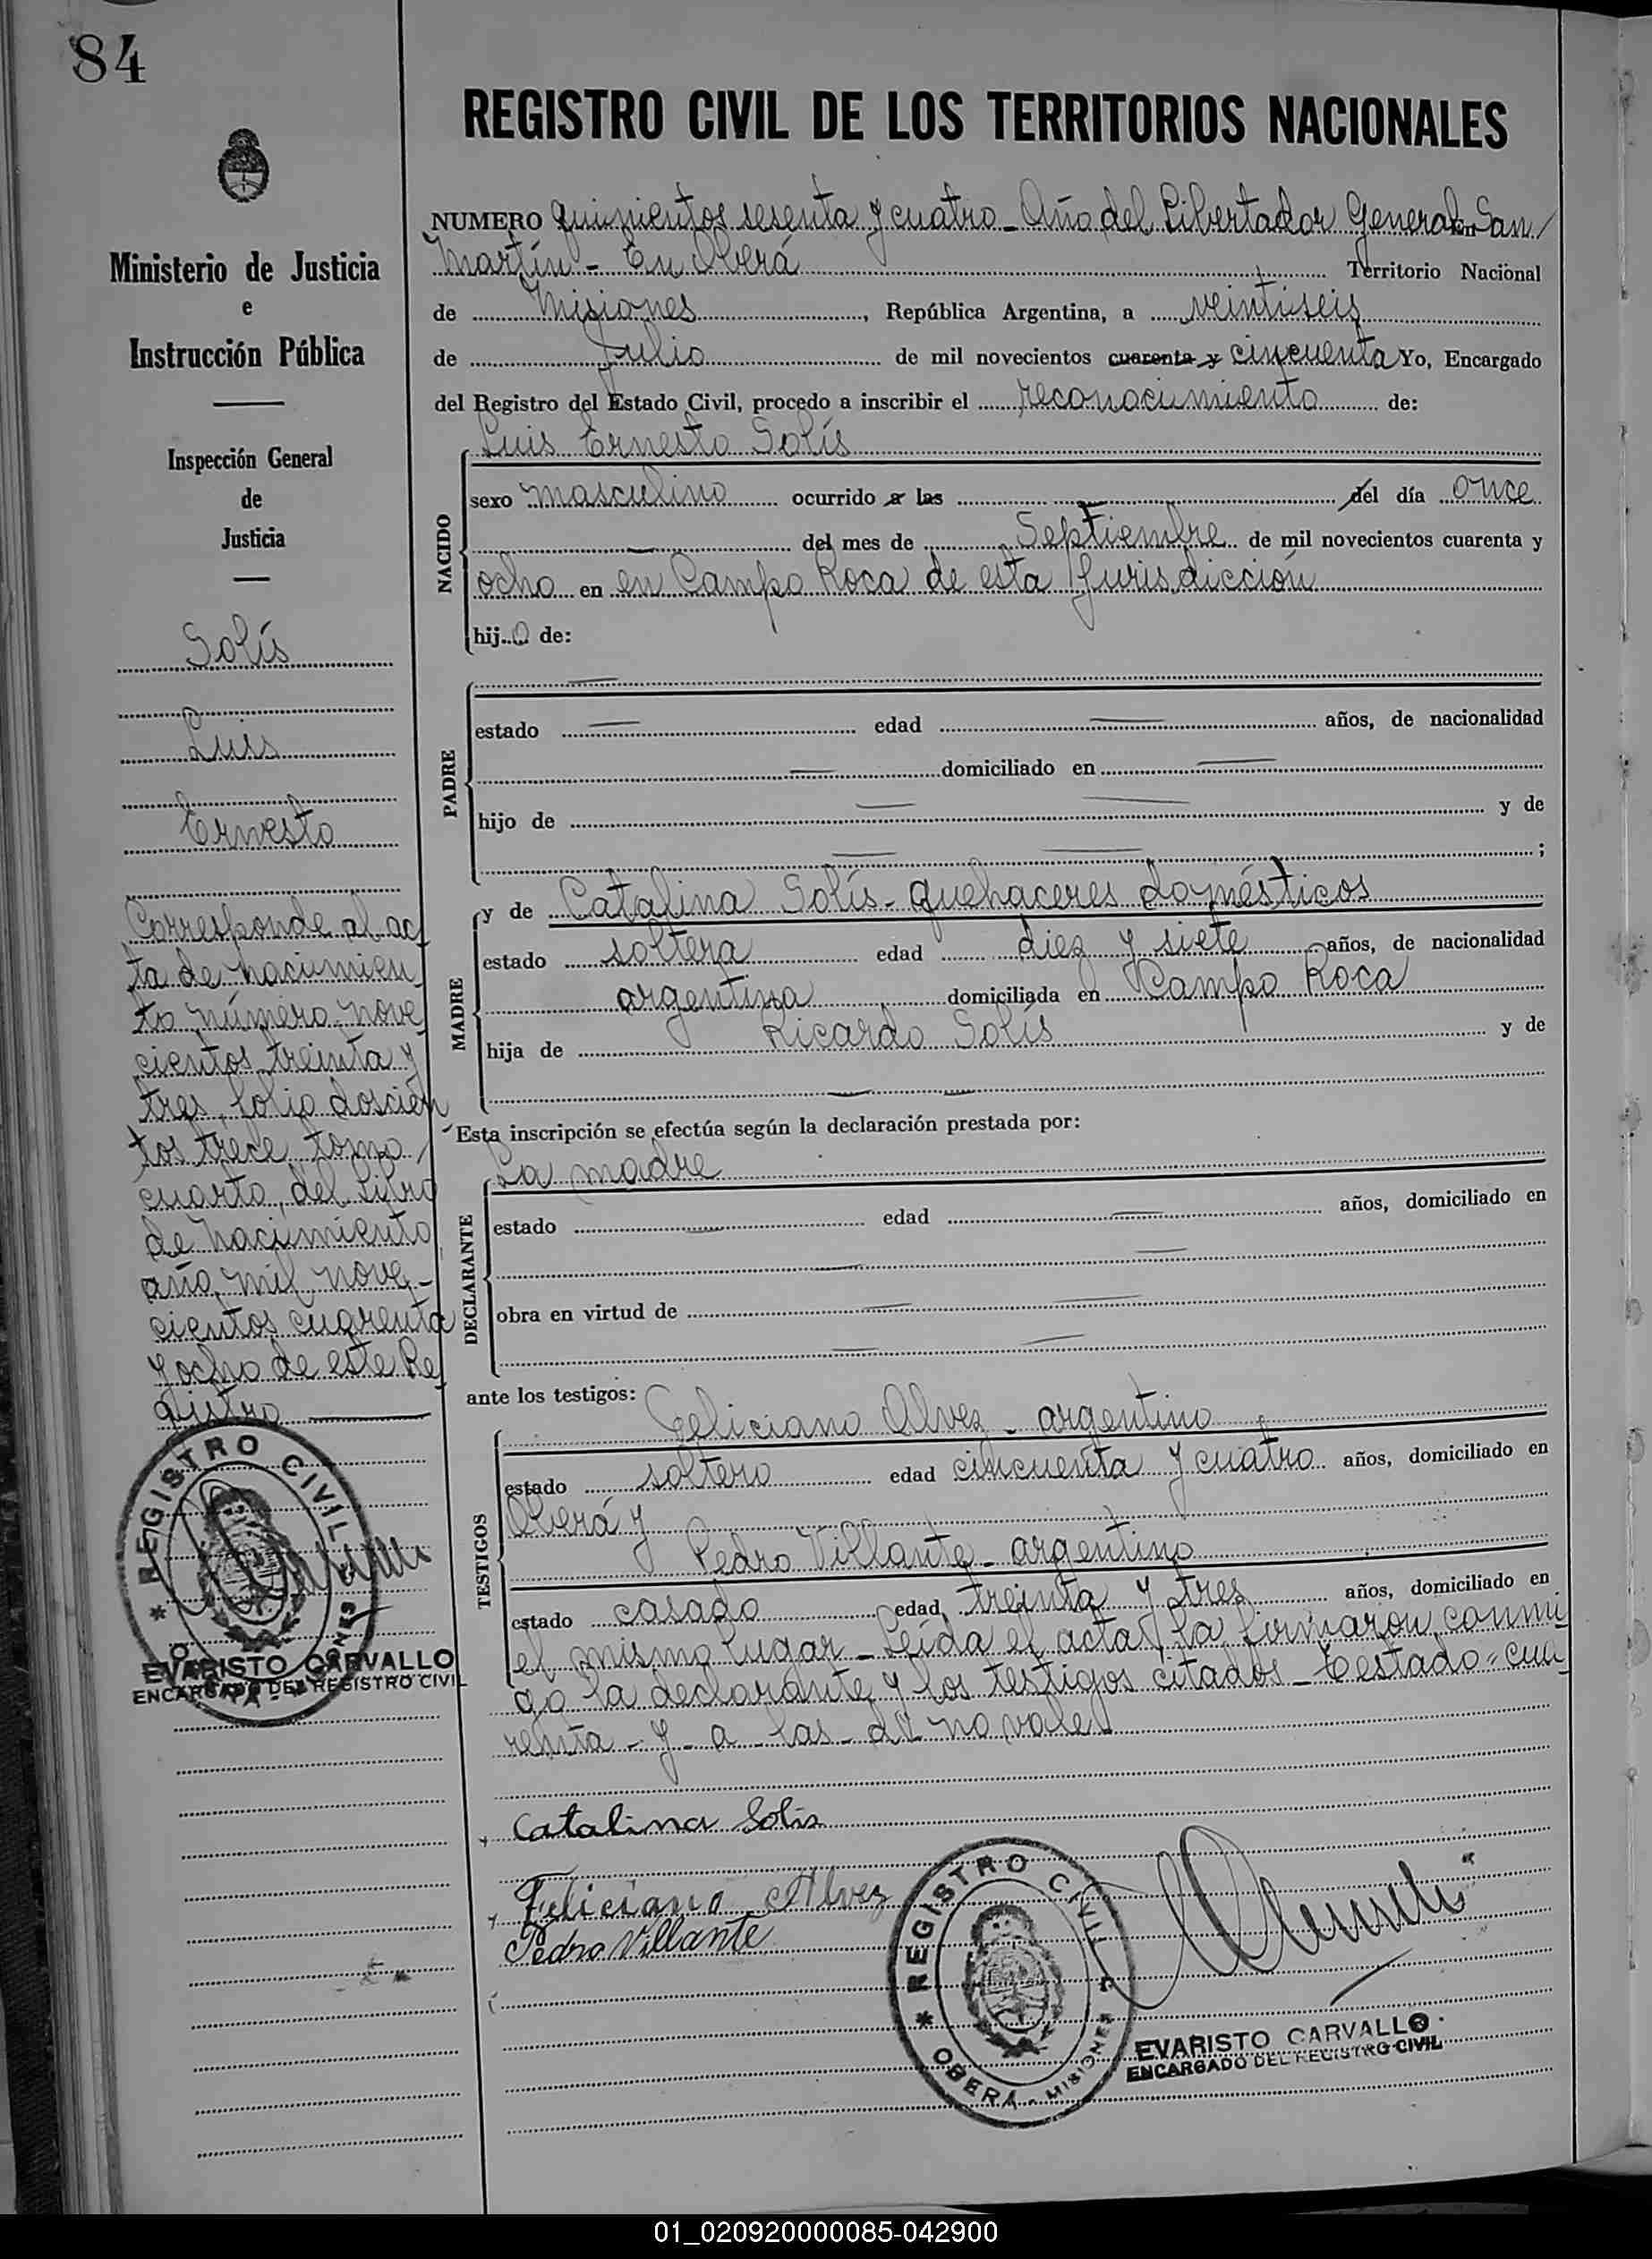 84
REGISTRO CIVIL DE LOS TERRITORIOS NACIONALES
Ministerio de Justicia
e
Instrucción Pública
Inspección General
de
Justicia
Solís
Luis
Ernesto
Corresponde al ac
ta de nacimien
to número nove
cientos treinta y
tres, folio doscien
tos trece tomo
cuarto, del libro
de nacimiento
año mil nove-
cientos cuarenta
y ocho de este Re
gistro
REGISTRO CIVIL
MISIONES
EVARISTO CARVALLO
ENCARGADO DEL REGISTRO CIVIL
NUMERO quinientos sesenta y cuatro - Año del Libertador General San
Martín - En Oberá Territorio Nacional
de Misiones, República Argentina, a veintiseis
de Julio de mil novecientos cuarenta y cincuenta Yo, Encargado
del Registro del Estado Civil, procedo a inscribir el reconocimiento de:
Luis Ernesto Solís
NACIDO
sexo masculino ocurrido a las del día once
del mes de Septiembre de mil novecientos cuarenta y
ocho en en Campo Roca de esta Jurisdicción
hijo de:
PADRE
estado edad años, de nacionalidad
domiciliado en
hijo de y de
;
MADRE
y de Catalina Solís - quehaceres domésticos
estado soltera edad diez y siete años, de nacionalidad
argentina domiciliada en Campo Roca
hija de Ricardo Solís y de
Esta inscripción se efectúa según la declaración prestada por:
La madre
DECLARANTE
estado edad años, domiciliado en
obra en virtud de
ante los testigos: Feliciano Alvez - argentino
TESTIGOS
estado soltero edad cincuenta y cuatro años, domiciliado en
Oberá y
Pedro Villante - argentino
estado casado edad treinta y tres años, domiciliado en
el mismo lugar - Leída el acta la firmaron conmi
go la declarante y los testigos citados - Testado = cua
renta - y - a - las - d - no vale
Catalina Solis
Feliciano Alvez
Pedro Villante
REGISTRO CIVIL
OBERÁ - MISIONES
EVARISTO CARVALLO
ENCARGADO DEL REGISTRO CIVIL
01_020920000085-042900